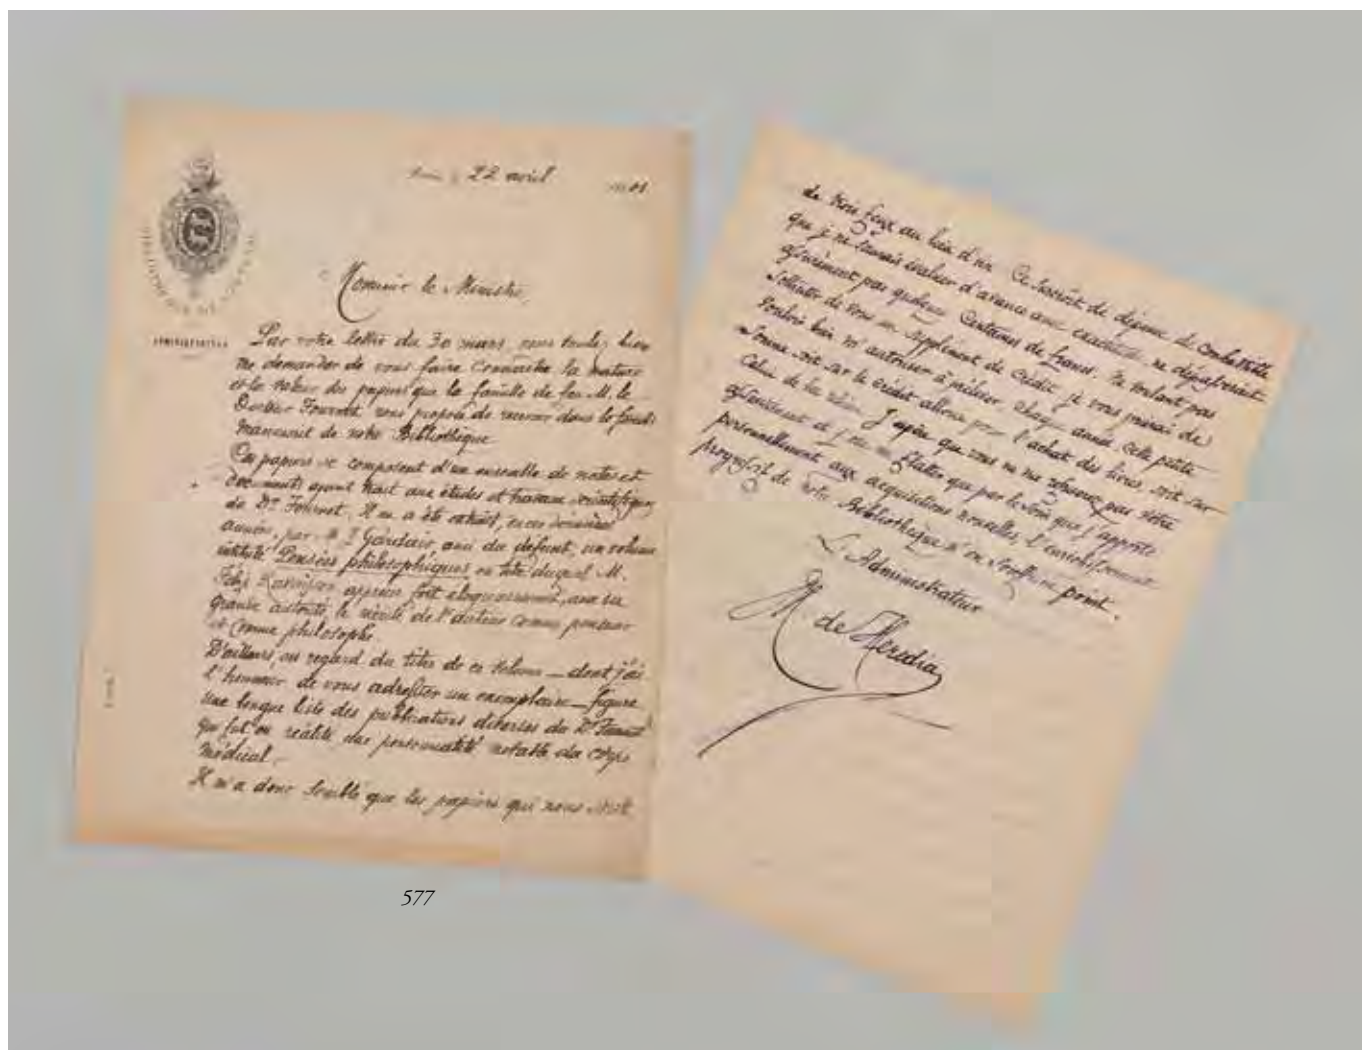 22 avril
BIBLIOTHÈQUE DE L'ARSENAL
ADMINISTRATION
Monsieur le Ministre,
Par votre lettre du 30 mars, vous voulez bien
me demander de vous faire connaître la nature
et la valeur des papiers que la famille de feu M. le
Docteur Fournet vous propose de recevoir dans le fonds
manuscrit de notre Bibliothèque
Ces papiers se composent d'un ensemble de notes et
documents ayant trait aux études et travaux scientifiques
du Dr Fournet. Il en a été extrait, en ces dernières
années, par M. J. Gardair, ami du défunt, un volume
intitulé Pensées philosophiques en tête duquel M.
Félix Ravaisson apprécie fort éloquemment, avec sa
grande autorité, le mérite de l'auteur comme penseur
et comme philosophe.
D'ailleurs, au regard du titre de ce volume — dont j'ai
l'honneur de vous adresser un exemplaire — figure
une longue liste des publications diverses du Dr Fournet
qui fut en réalité une personnalité notable du corps
médical.
Il m'a donc semblé que les papiers qui nous sont
de trois feux au lieu d'un. Ce surcroît de dépense de combustible
que je ne saurais évaluer d'avance avec exactitude ne dépasserait
sûrement pas quelques centaines de francs. Ne voulant pas
solliciter de vous un supplément de crédit, je vous prierai de
vouloir bien m'autoriser à prélever chaque année cette petite
somme soit sur le crédit alloué pour l'achat des livres, soit sur
celui de la reliure. J'espère que vous ne me refuserez pas votre
assentiment et j'ose me flatter que par le soin que j'apporte
personnellement aux acquisitions nouvelles, l'enrichissement
progressif de notre Bibliothèque n'en souffrira point.
L'Administrateur
M de Heredia
577